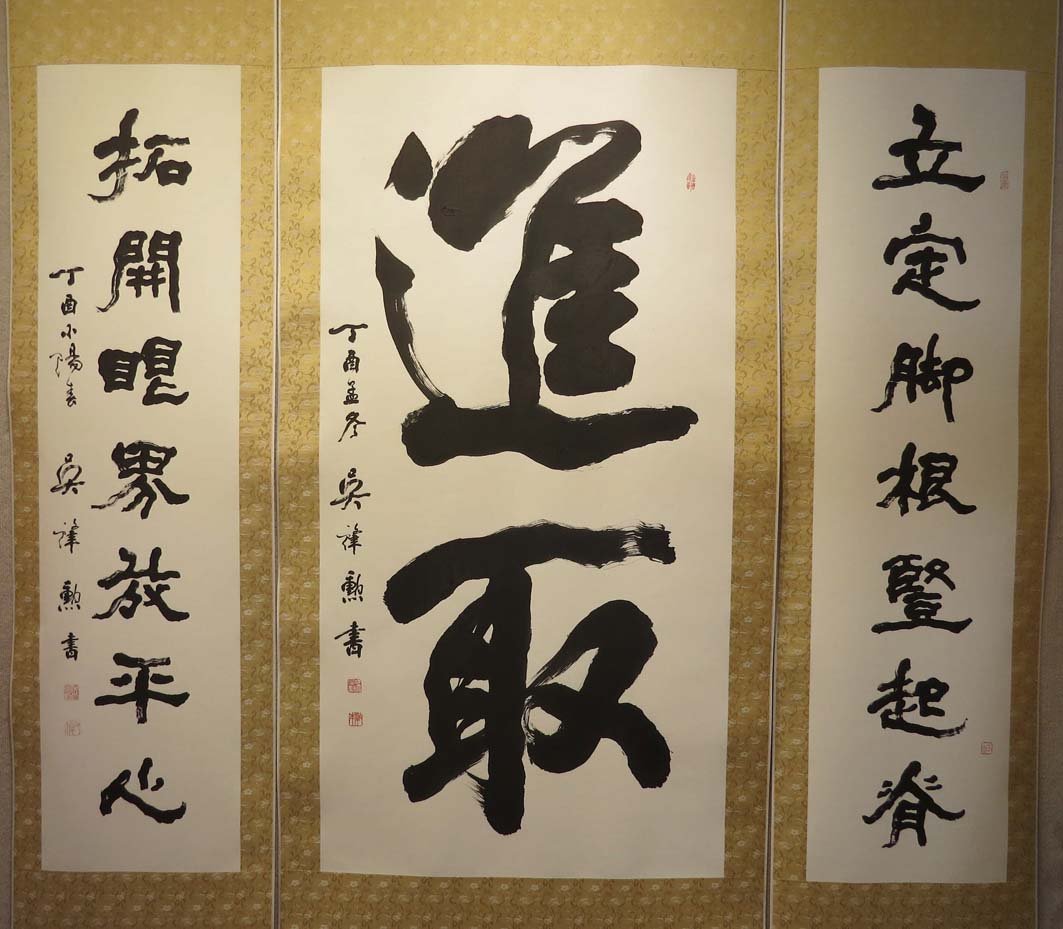 立定脚根豎起脊
進取
丁酉孟冬 吳肇勲書
拓開眼界放平心
丁酉小陽春 吳肇勲書